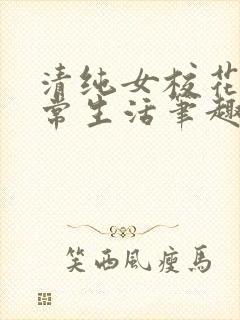 清纯女校花
常生活笔趣
笑西风瘦马